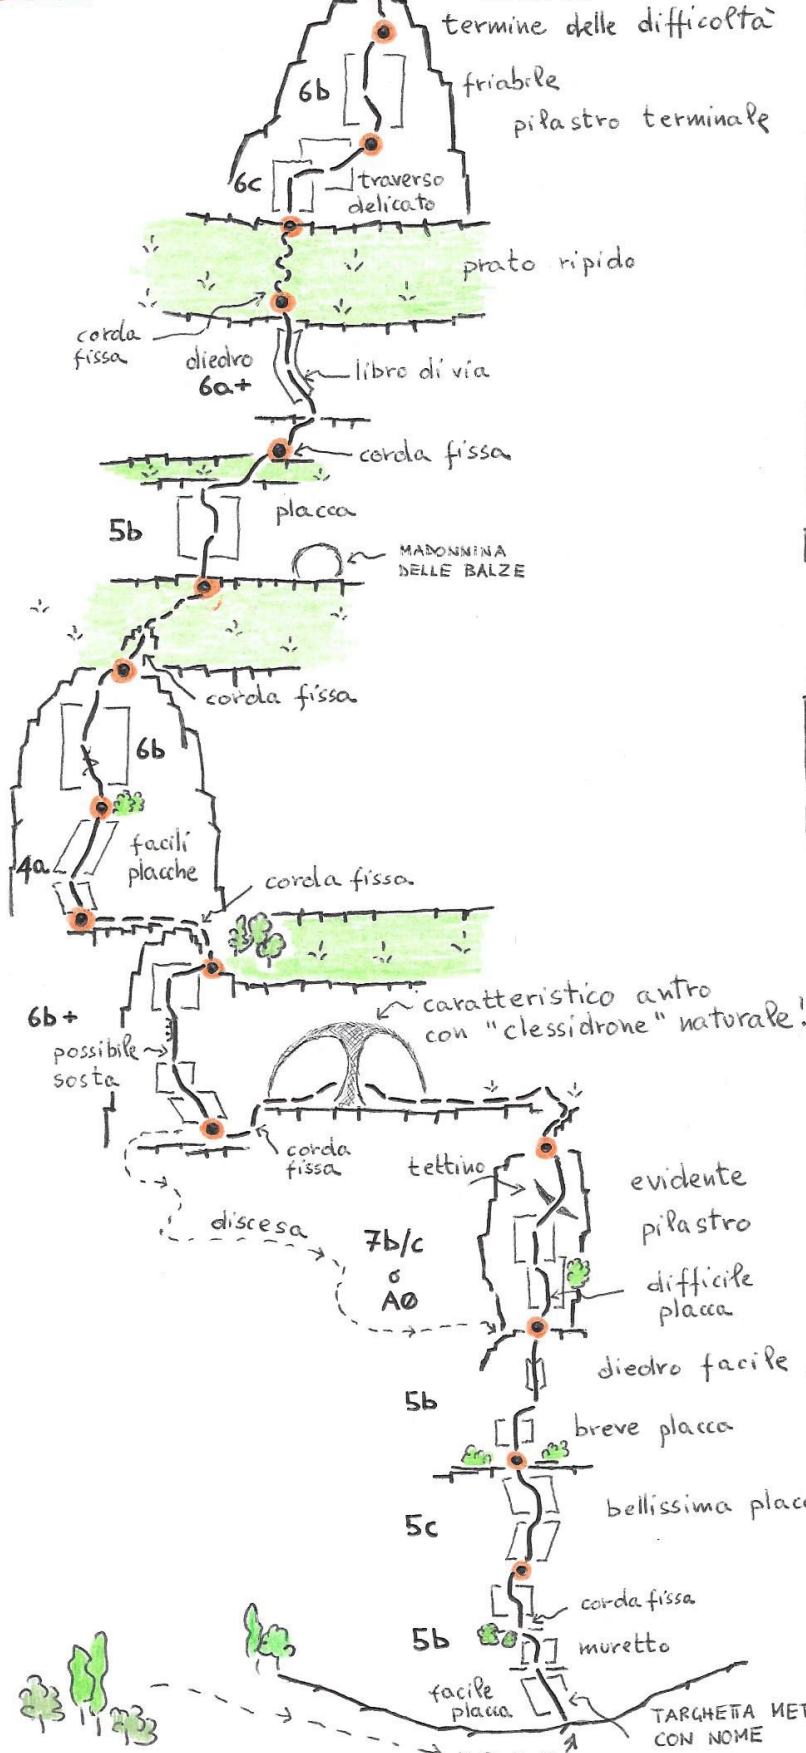 termine delle difficoltà
6b
friabile
pilastro terminale
6c
traverso
delicato
prato ripido
corda
fissa
diedro
6a+
libro di via
corda fissa
placca
5b
MADONNINA
DELLE BALZE
corda fissa
6b
4a
facili
placche
corda fissa
6b+
caratteristico antro
con "clessidrone" naturale!
possibile
sosta
corda
fissa
tettino
evidente
pilastro
discesa
7b/c
o
A0
difficile
placca
diedro facile
5b
breve placca
5c
bellissima
corda fissa
5b
muretto
facile
placca
TARGHETTA
CON NOME